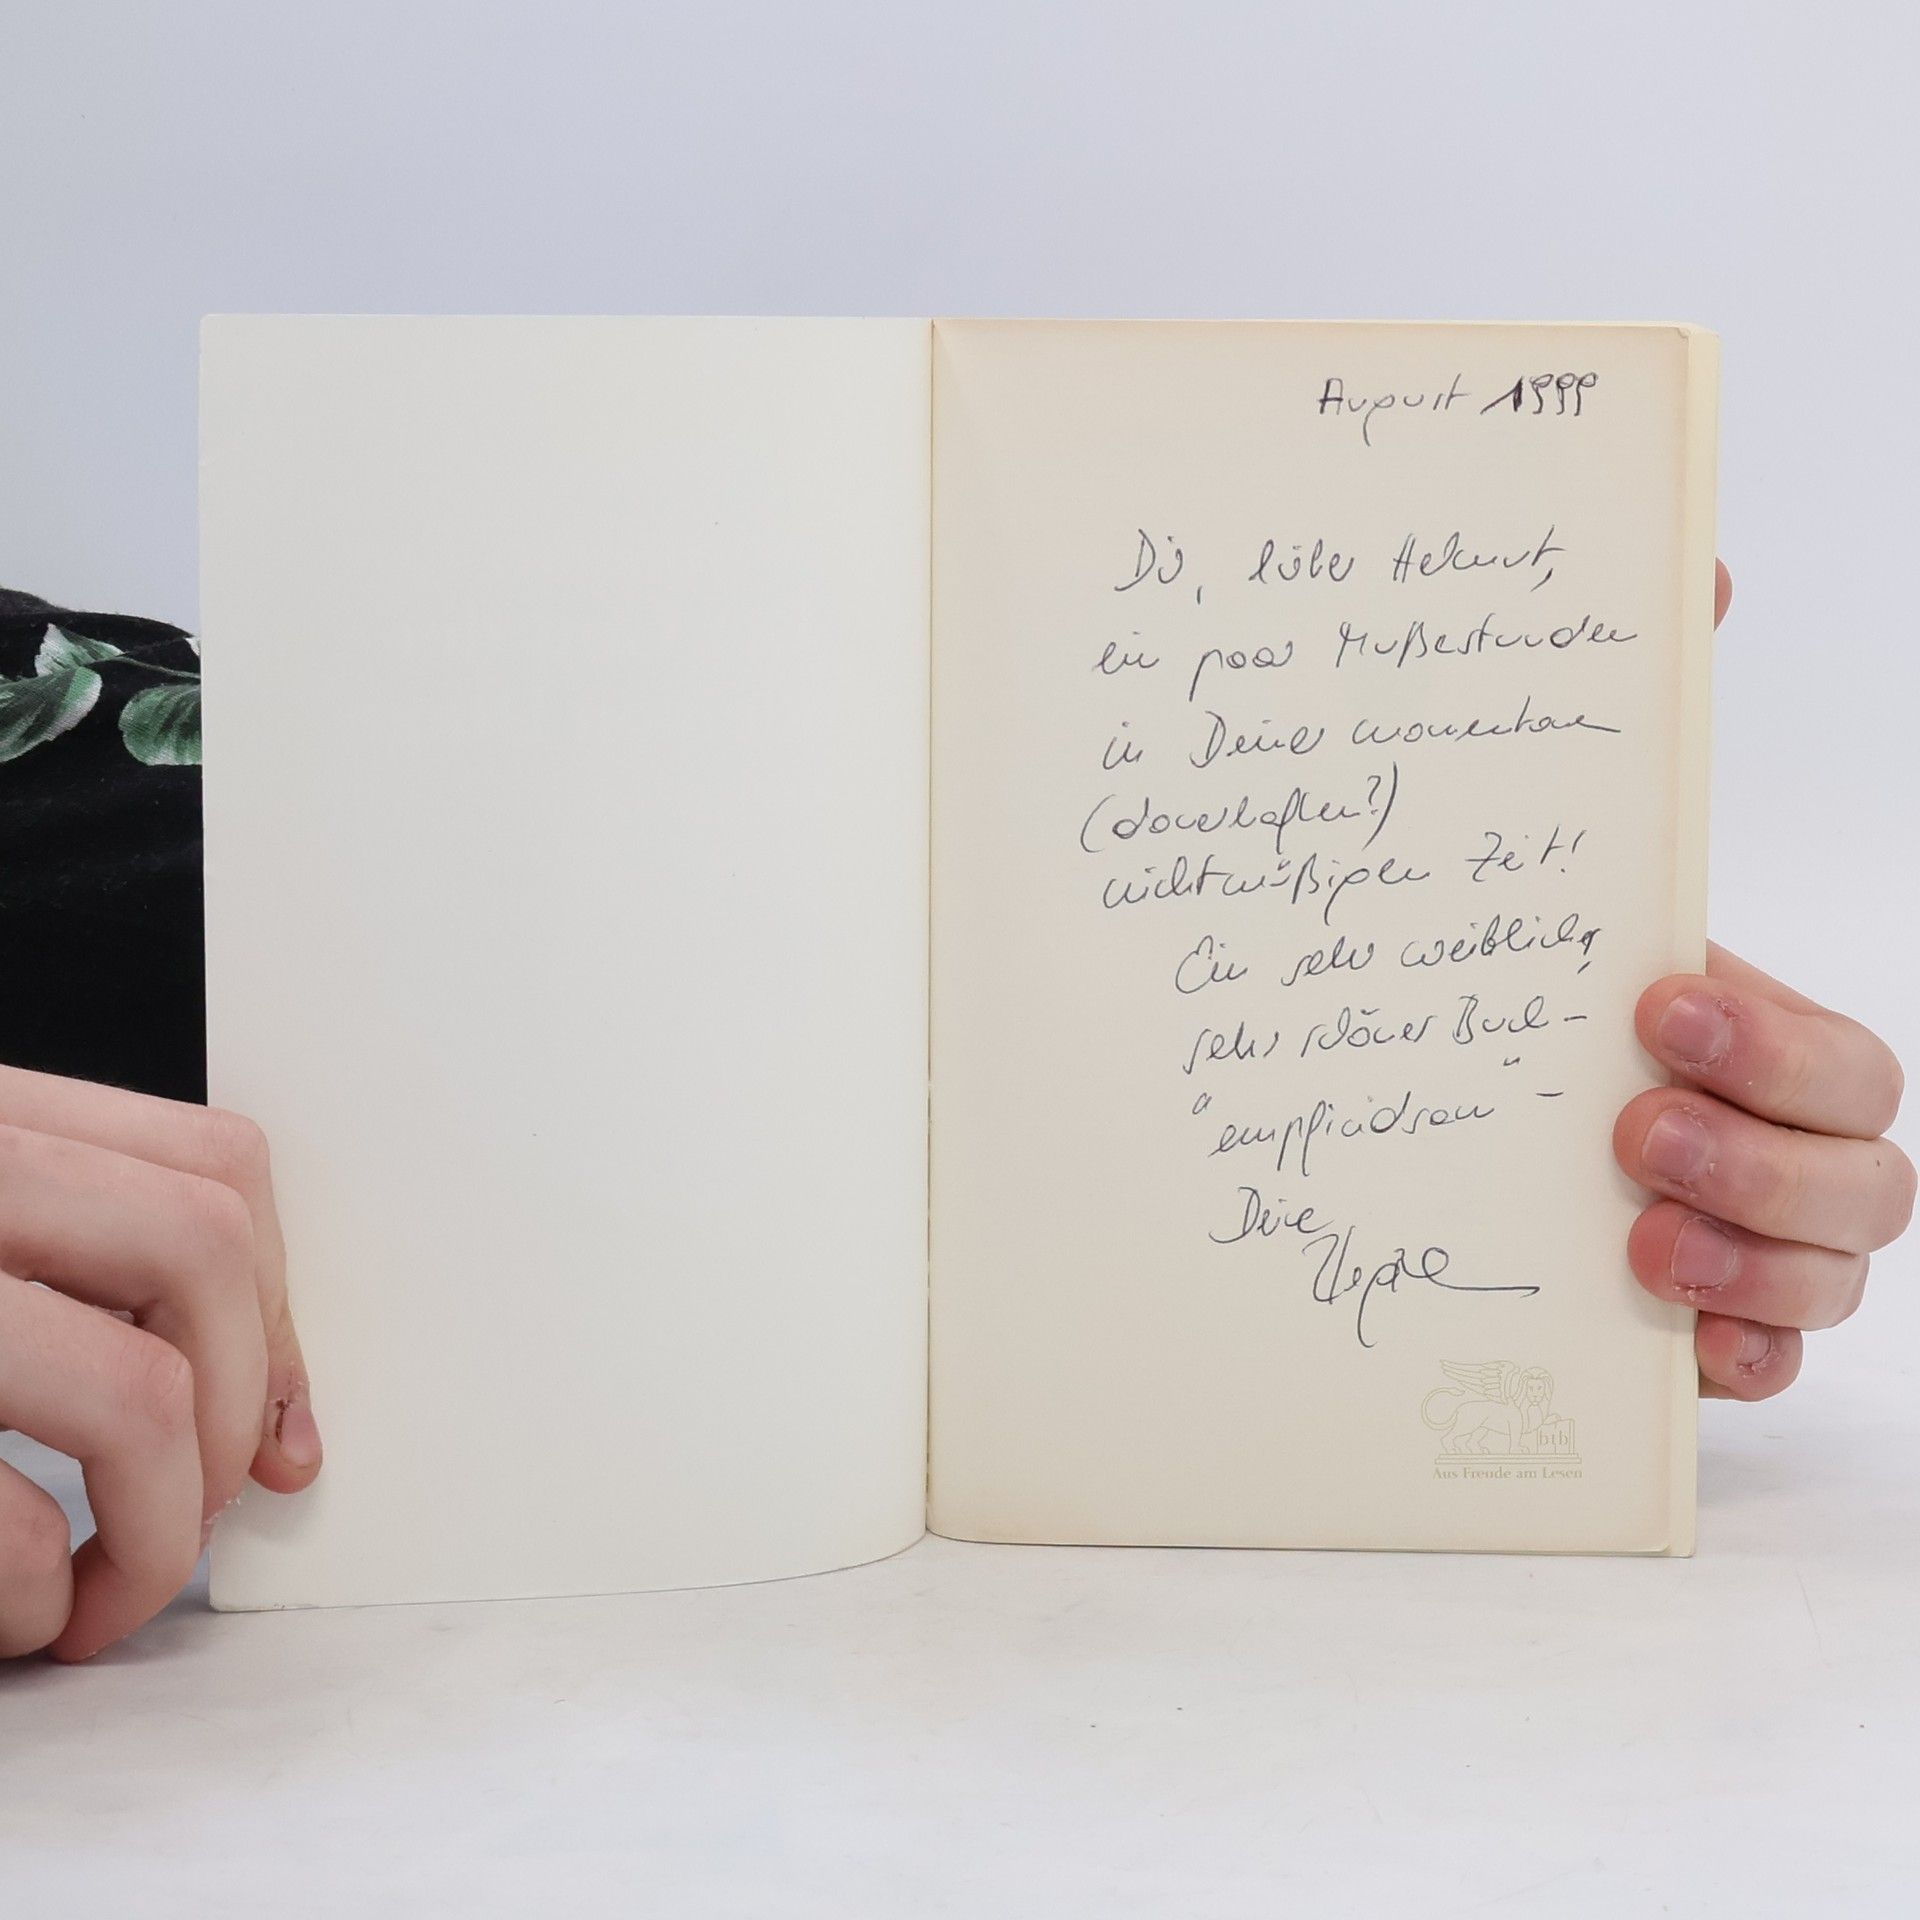 August 1999
Dir, lieber Helmut,
ein paar Mußestunden
in Deiner momentanen
(dauerhaften?)
nichtmüßigen Zeit!
Ein sehr weibliches,
sehr schönes Buch –
"empfindsam" –
Deine
btb
Aus Freude am Lesen